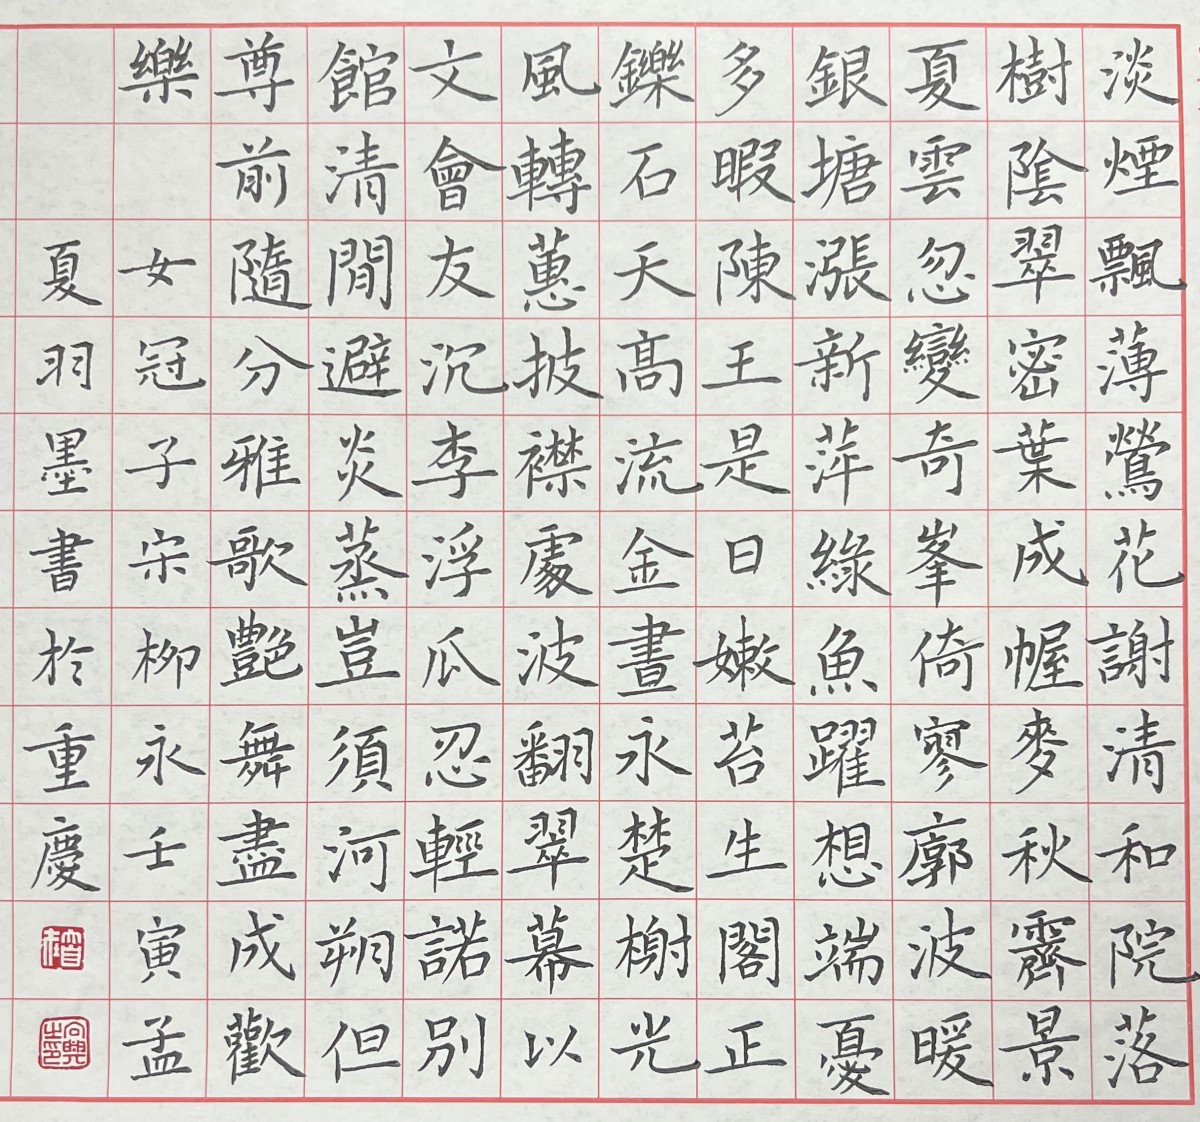 淡煙飄薄鶯花謝清和院落
樹陰翠密葉成幄麥秋霽景
夏雲忽變奇峯倚寥廓波暖
銀塘漲新萍綠魚躍想端憂
多暇陳王是日嫩苔生閣正
鑠石天高流金晝永楚榭光
風轉蕙披襟處波翻翠幕以
文會友沉李浮瓜忍輕諾別
館清閒避炎蒸豈須河朔但
尊前隨分雅歌艷舞盡成歡
樂 女冠子宋柳永壬寅孟
夏羽墨書於重慶